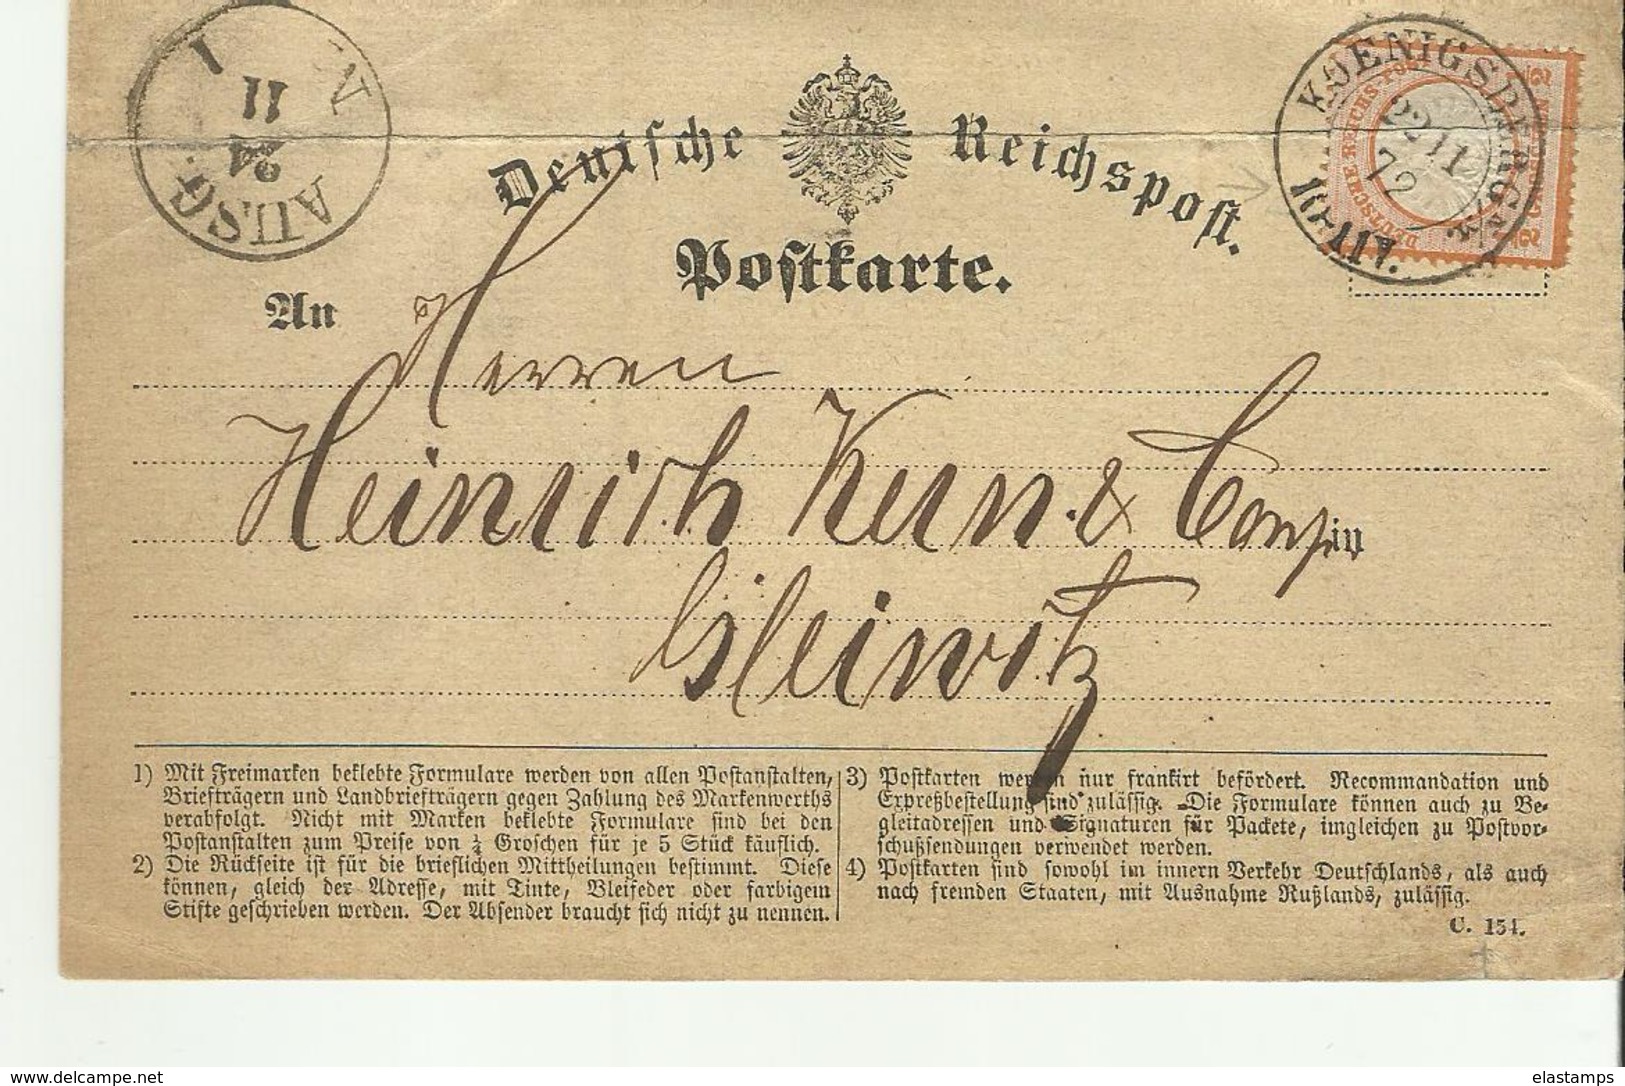 AUSG.
24
11
I
N.
KOENIGSBERG
22 11
72
Deutsche Reichspost.
Postkarte.
An
Herren
Heinrich Kern & Comp
in
Gleiwitz
1) Mit Freimarken beklebte Formulare werden von allen Postanstalten,
Briefträgern und Landbriefträgern gegen Zahlung des Markenwerths
verabfolgt. Nicht mit Marken beklebte Formulare sind bei den
Postanstalten zum Preise von ¼ Groschen für je 5 Stück käuflich.
2) Die Rückseite ist für die brieflichen Mittheilungen bestimmt. Diese
können, gleich der Adresse, mit Tinte, Bleifeder oder farbigem
Stifte geschrieben werden. Der Absender braucht sich nicht zu nennen.
3) Postkarten werden nur frankirt befördert. Recommandation und
Expreßbestellung sind zulässig. Die Formulare können auch zu Be-
gleitadressen und Signaturen für Packete, imgleichen zu Postvor-
schußsendungen verwendet werden.
4) Postkarten sind sowohl im innern Verkehr Deutschlands, als auch
nach fremden Staaten, mit Ausnahme Rußlands, zulässig.
C. 154.
www.delcampe.net
elastamps